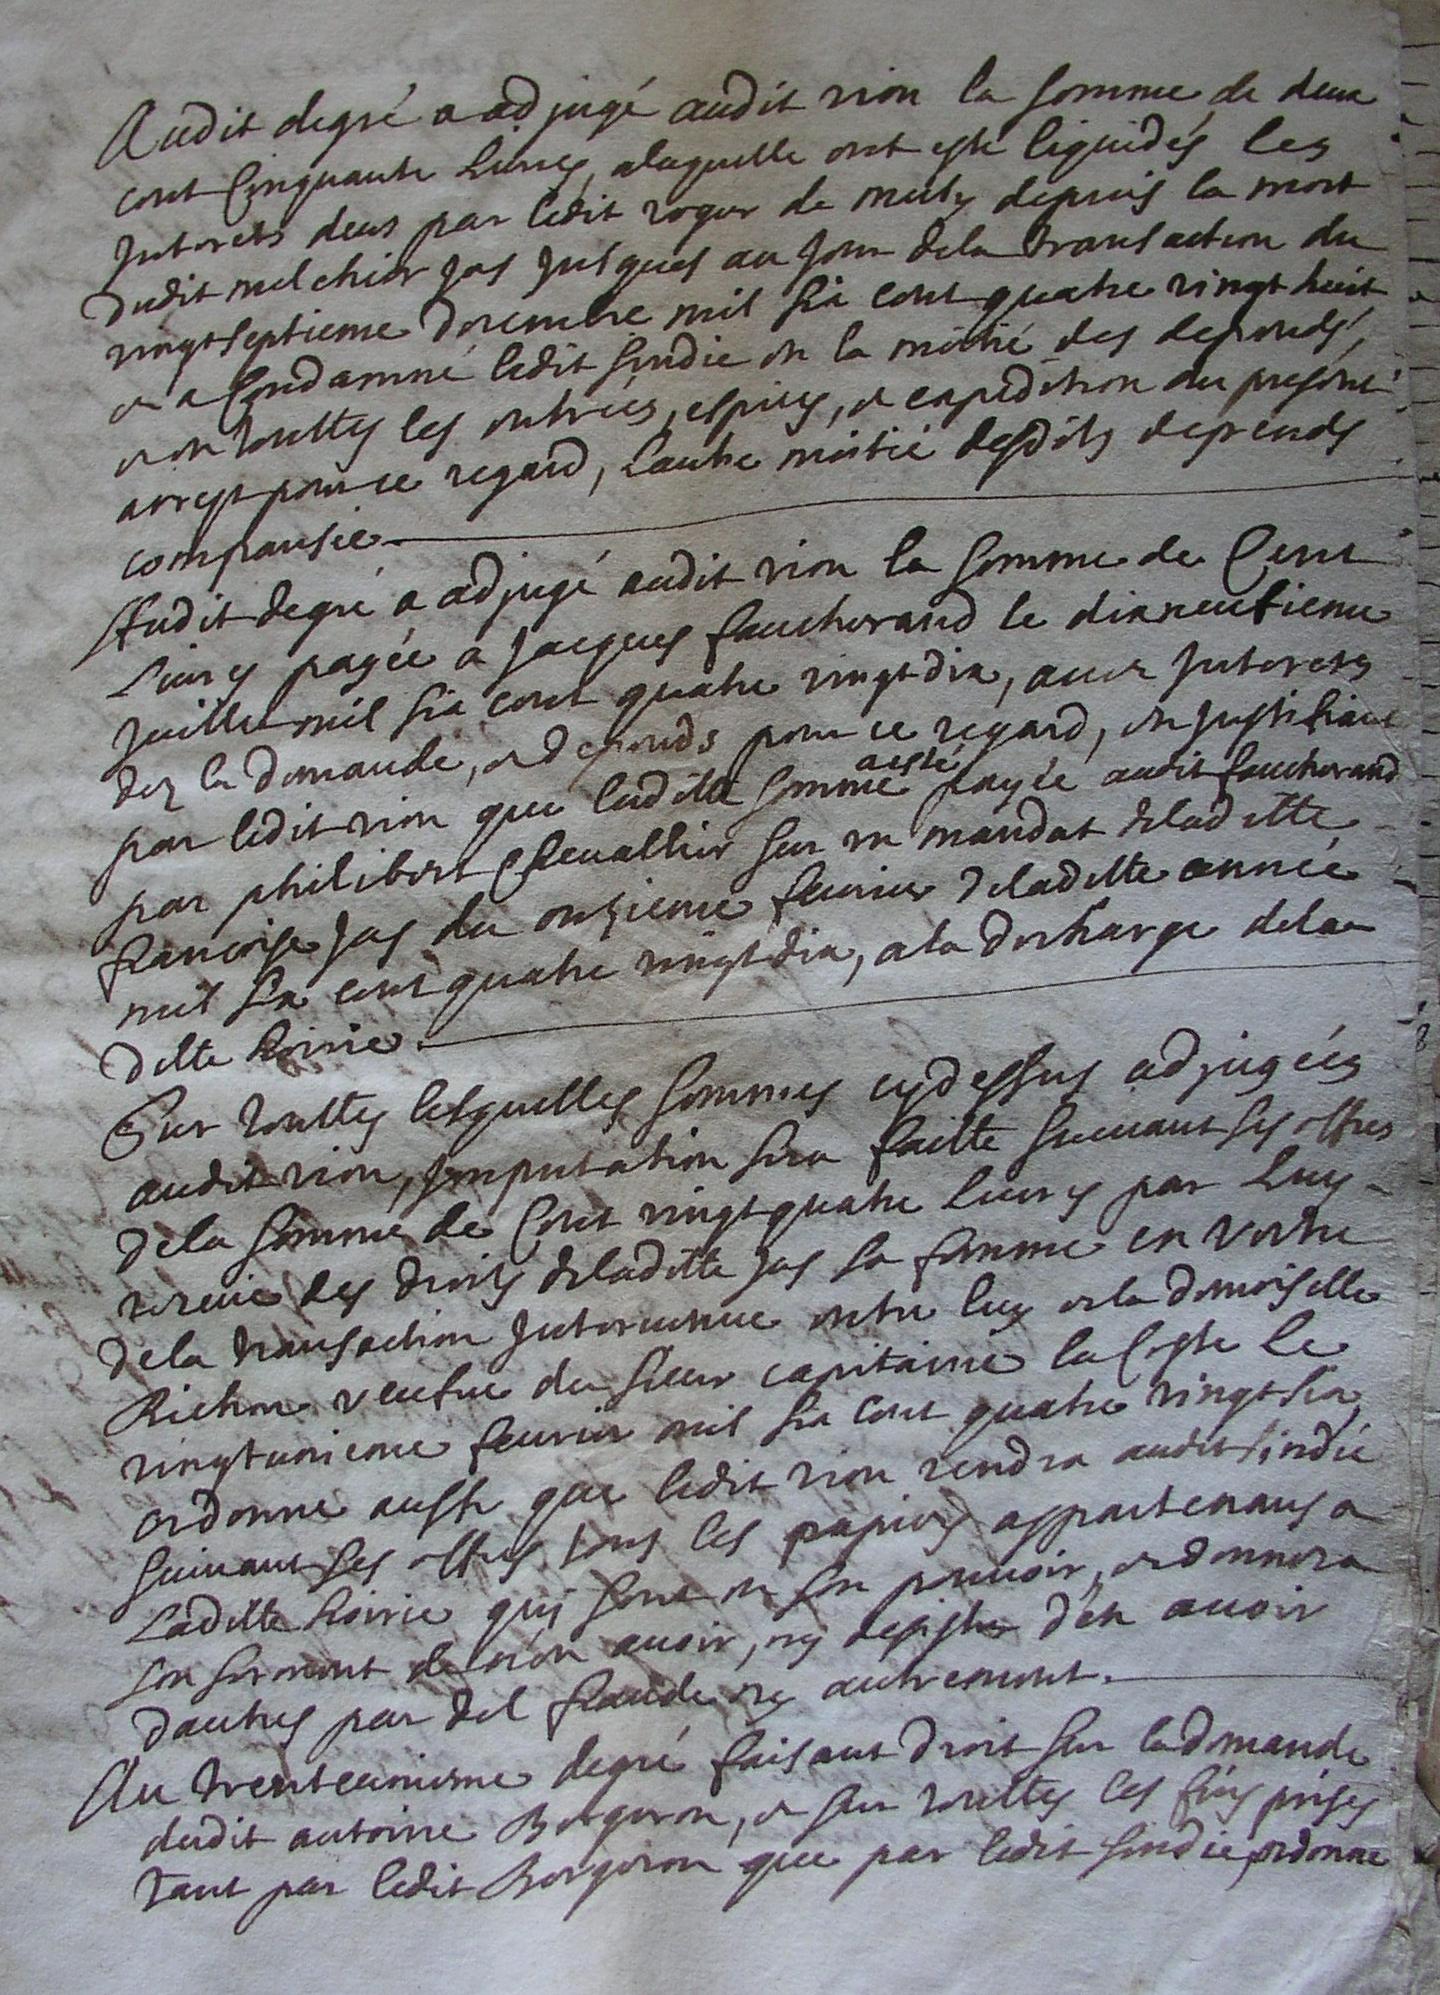 Audit degré a adjugé audit rion la somme de deux
cent Cinquante Livres, alaquelle ont esté liquidés les
Jnterets deus par ledit roger de mutz depuis la mort
dudit melchior Jas Jusques au Jour dela transaction du
vingtseptieme decembre mil six cent quatre vingt huit
et a Condamné ledit sindic en la moitié des depends,
et en touttes les entrées, espices, et expedition du present
arrest pour ce regard, Lautre moitié desdits depends
compansée.
Audit degré a adjugé audit rion la somme de Cent
Livres payée a Jacques faucherand le dixneufieme
Juillet mil six cent quatre vingt dix, avec Jnterets
dez la demande, et depends pour ce regard, en Justifiant
par ledit rion que laditte somme a esté payée audit faucherand
par philibert Chevallier sur un mandat deladitte
francoise Jas du onzieme fevrier deladitte année
mil six cent quatre vingt dix, a la decharge delad
ditte hoirie.
Sur touttes lesquelles sommes cy dessus adjugées
audit rion, Jmputation sera faitte suivant ses offres
dela somme de Cent vingtquatre Livres par Luy
receue des droits deladitte Jas sa femme en vertu
dela transaction Jntervenue entre luy et la demoiselle
Richon veufve du sieur capitaine la Coste Le
vingtunieme fevrier mil six cent quatre vingt six,
ordonne aussy que ledit rion rendra audit sindic
suivant ses offres tous les papiers appartenans a
Laditte hoirie qui sont en son pouvoir, et donnera
son serment de nen avoir, ny desister d'en avoir
dautres par dol fraude ny autrement.
Au trenteunieme degré faisant droit sur la demande
dudit antoine Bergeron, et sur touttes les fins prises
tant par ledit Bergeron que par ledit sindic, ordonne